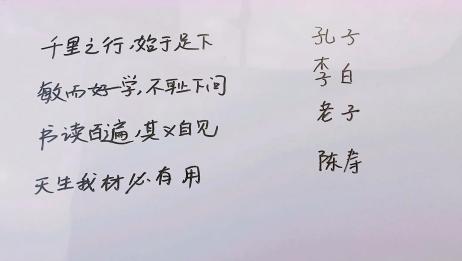 千里之行,始于足下 孔子
敏而好学,不耻下问 李白
书读百遍,其义自见 老子
天生我材必有用 陈寿